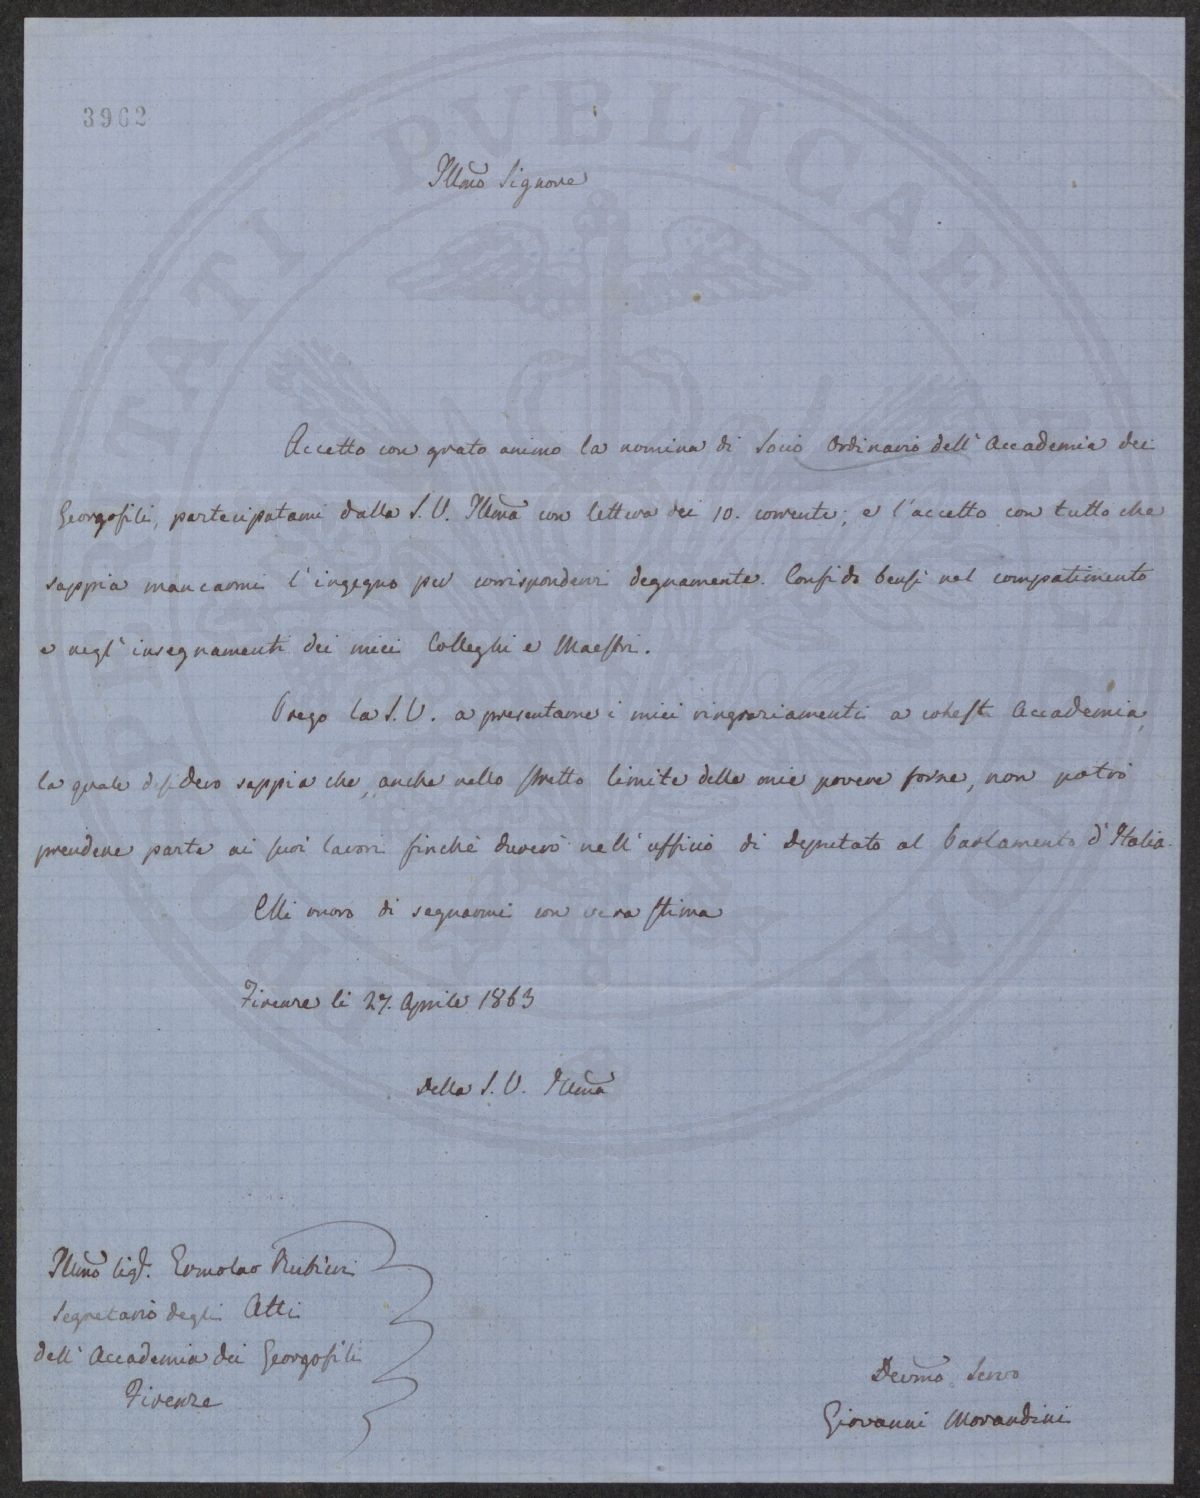 3962
PROSPERITATI PVBLICAE AVGENDAE
Illmo Signore
Accetto con grato animo la nomina di Socio Ordinario dell' Accademia dei
Georgofili, partecipatami dalla S. V. Illma con lettera dei 10. corrente; e l'accetto con tutto che
sappia mancarmi l'ingegno per corrispondervi degnamente. Confido bensì nel compatimento
e negl' insegnamenti dei miei Colleghi e Maestri.
Prego la S. V. a presentarne i miei ringraziamenti a cotesta Accademia,
la quale desidero sappia che, anche nello stretto limite delle mie povere forze, non potrò
prendere parte ai suoi lavori finchè durerò nell' ufficio di Deputato al Parlamento d'Italia.
Mi onoro di segnarmi con vera stima
Firenze li 27. Aprile 1863
Della S. V. Illma
Illmo Sigr. Ermolao Rubieri
Segretario degli Atti
dell' Accademia dei Georgofili
Firenze
Devmo Servo
Giovanni Morandini